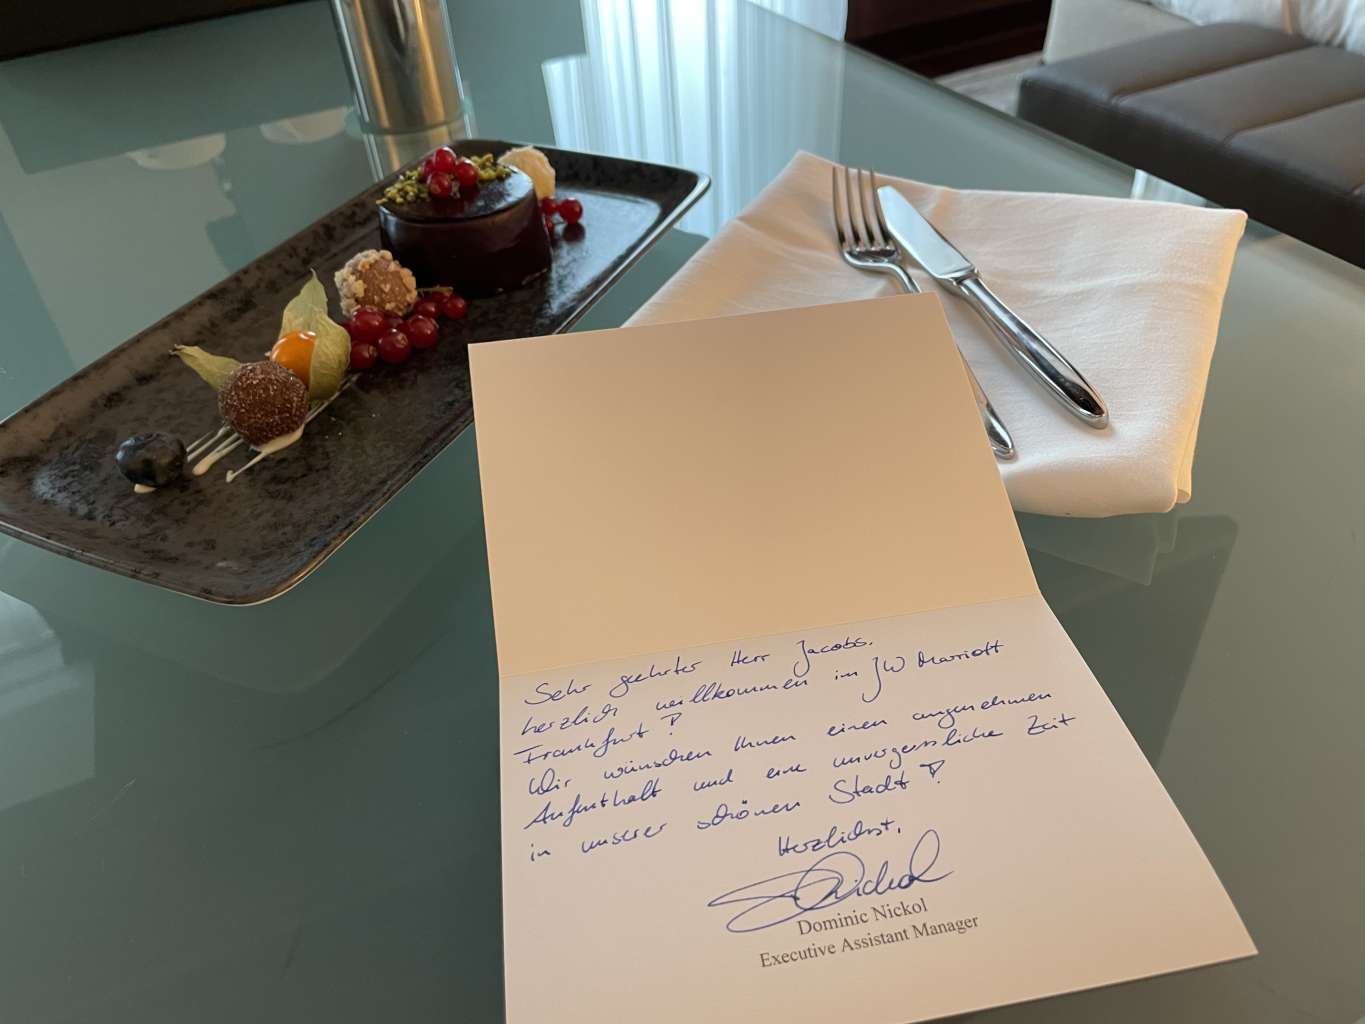 Sehr geehrter Herr Jacobs,
herzlich willkommen im JW Marriott
Frankfurt!
Wir wünschen Ihnen einen angenehmen
Aufenthalt und eine unvergessliche Zeit
in unserer schönen Stadt!
Herzlichst,
Dominic Nickol
Executive Assistant Manager